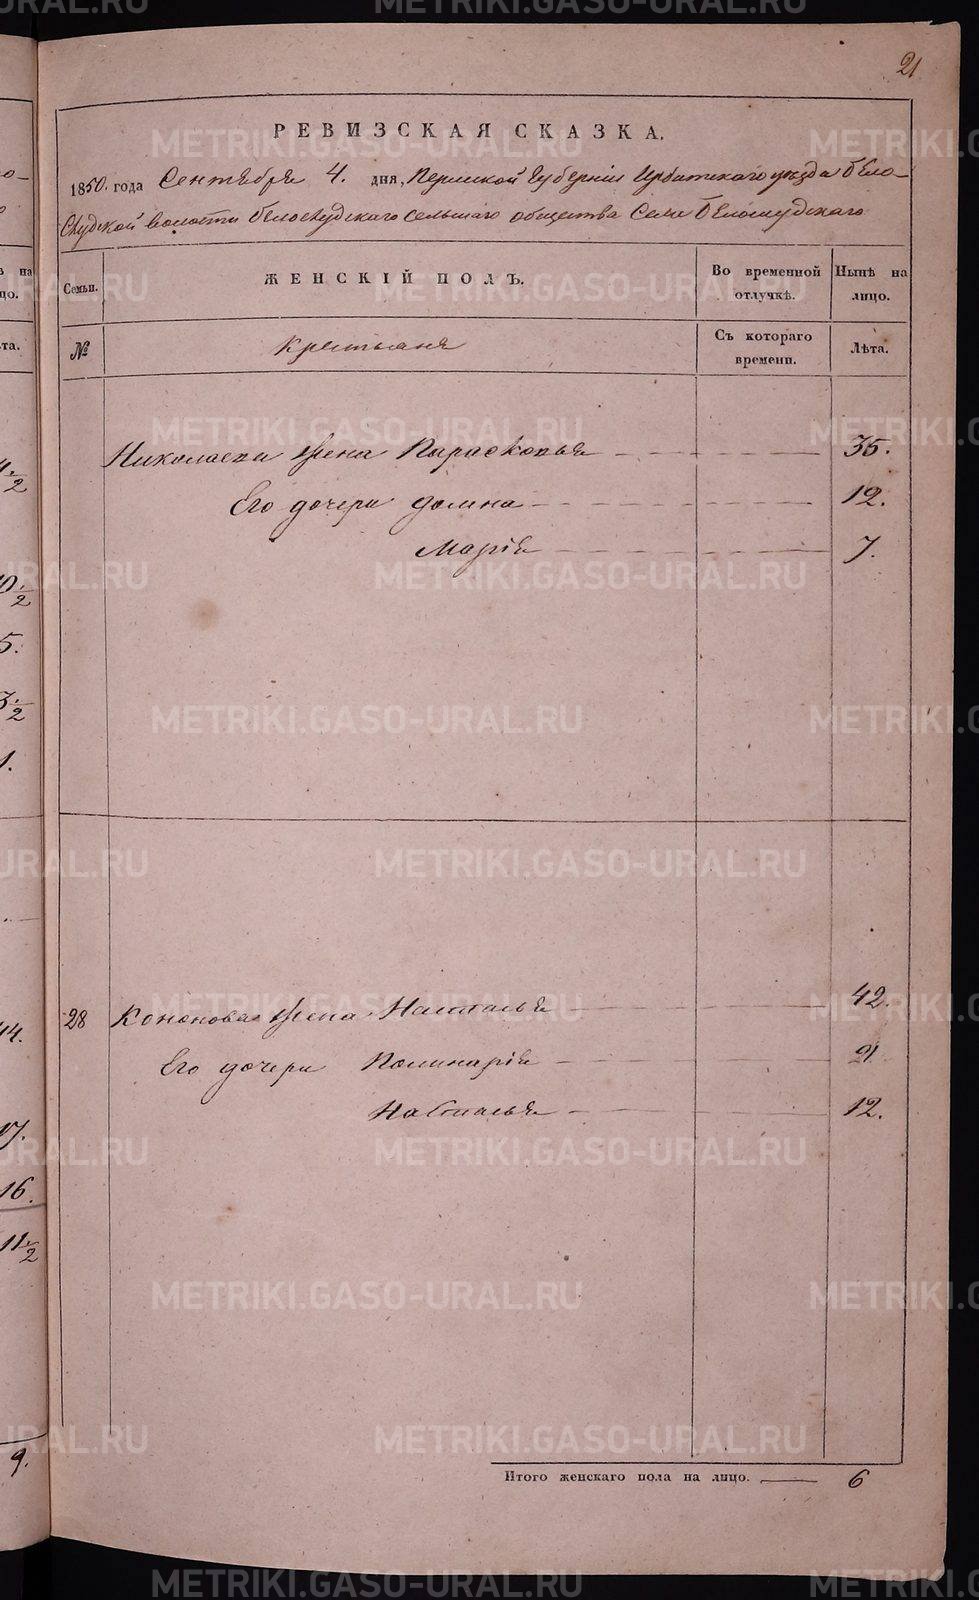 21
РЕВИЗСКАЯ СКАЗКА.
1850. года Сентября 4. дня, Пермской Губернии Ирбитскаго уѣзда Бѣло-
слудской волости Бѣлослудскаго сельскаго общества Села Бѣлослудскаго
Семьи.
ЖЕНСКІЙ ПОЛЪ.
Во временной отлучкѣ.
Нынѣ на лицо.
№
Крестьяне
Съ котораго времени.
Лѣта.
Николаева жена Парасковья 35.
Его дочери Домна 12.
Марія 7.
28 Кононова жена Наталья 42.
Его дочери Полинарія 21
Настасья 12.
Итого женскаго пола на лицо. 6
METRIKI.GASO-URAL.RU